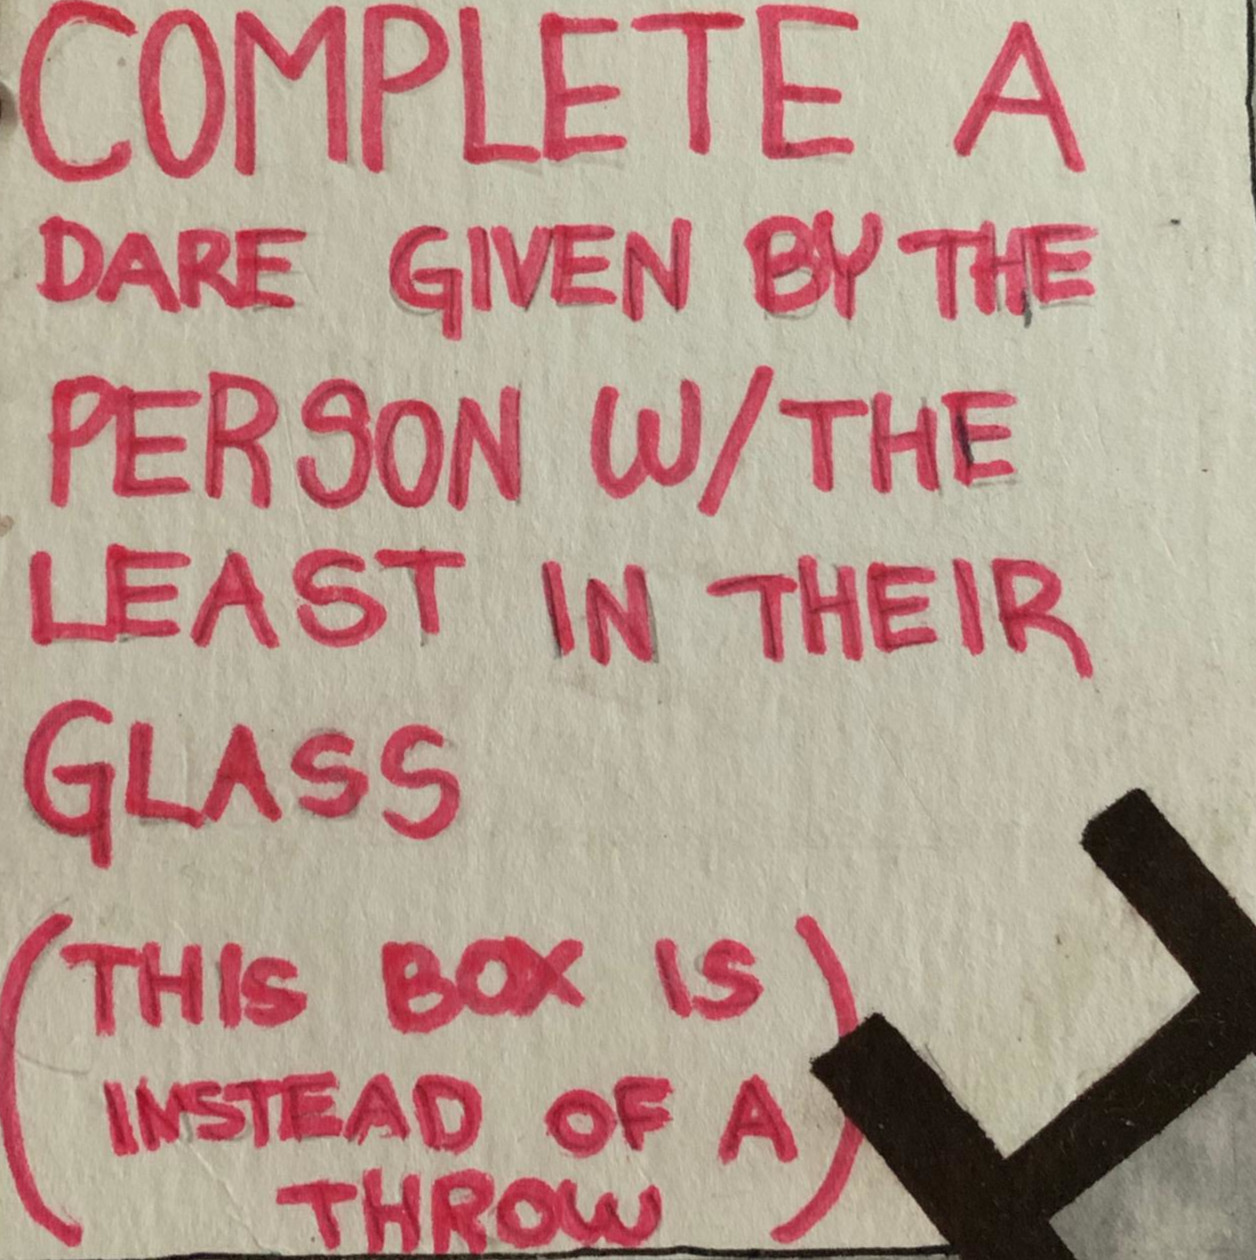 COMPLETE A
DARE GIVEN BY THE
PERSON W/THE
LEAST IN THEIR
GLASS
(THIS BOX IS
INSTEAD OF A
THROW)